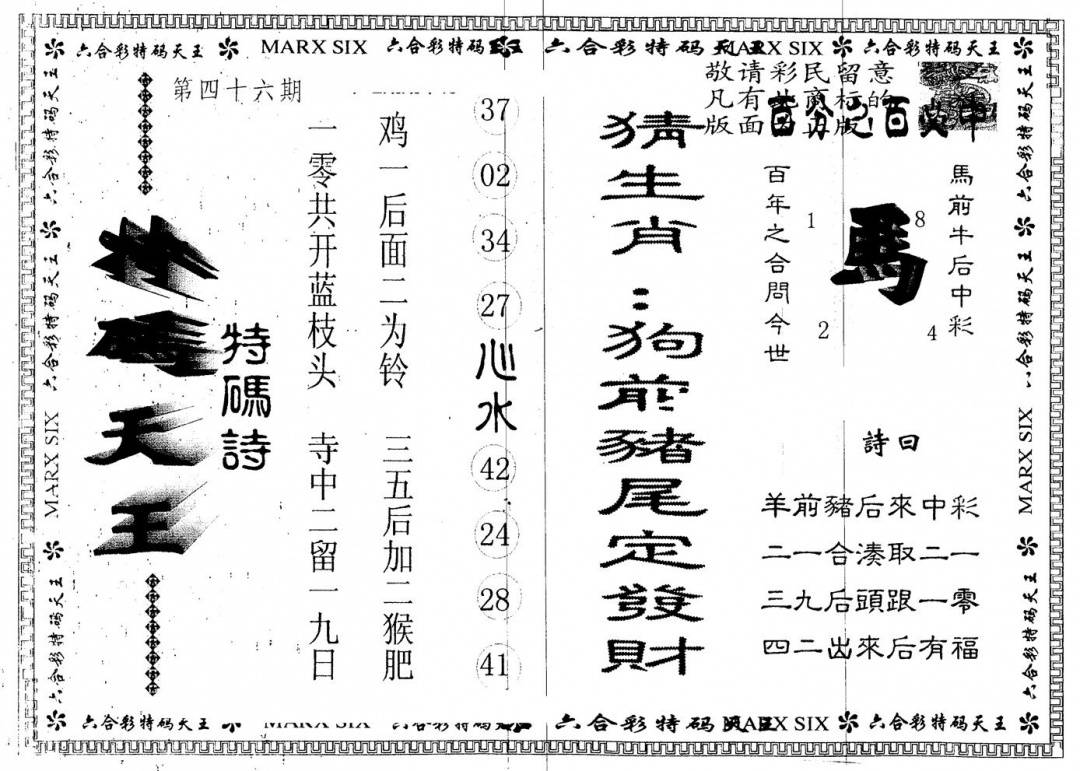 六合彩特码天王 MARX SIX 六合彩特码
六合彩特码天王 MARX SIX 六合彩特码天王
第四十六期
特码天王
特碼詩
一零共开蓝枝头 寺中二留一九日
鸡一后面二为铃 三五后加二猴肥
37
02
34
27
心水
42
24
28
41
猜生肖:狗前豬尾定發財
敬请彩民留意
凡有此商标的
版面为正版
百分之百灵中
馬前牛后中彩
馬
1 8
2 4
百年之合問今世
詩曰
羊前豬后來中彩
二一合湊取二一
三九后頭跟一零
四二出來后有福
六合彩特码天王
MARX SIX
六合彩特码天王
六合彩特码天王
MARX SIX
六合彩特码天王
六合彩特码天王 MARX SIX 六合彩特码
六合彩特码天王 MARX SIX 六合彩特码天王